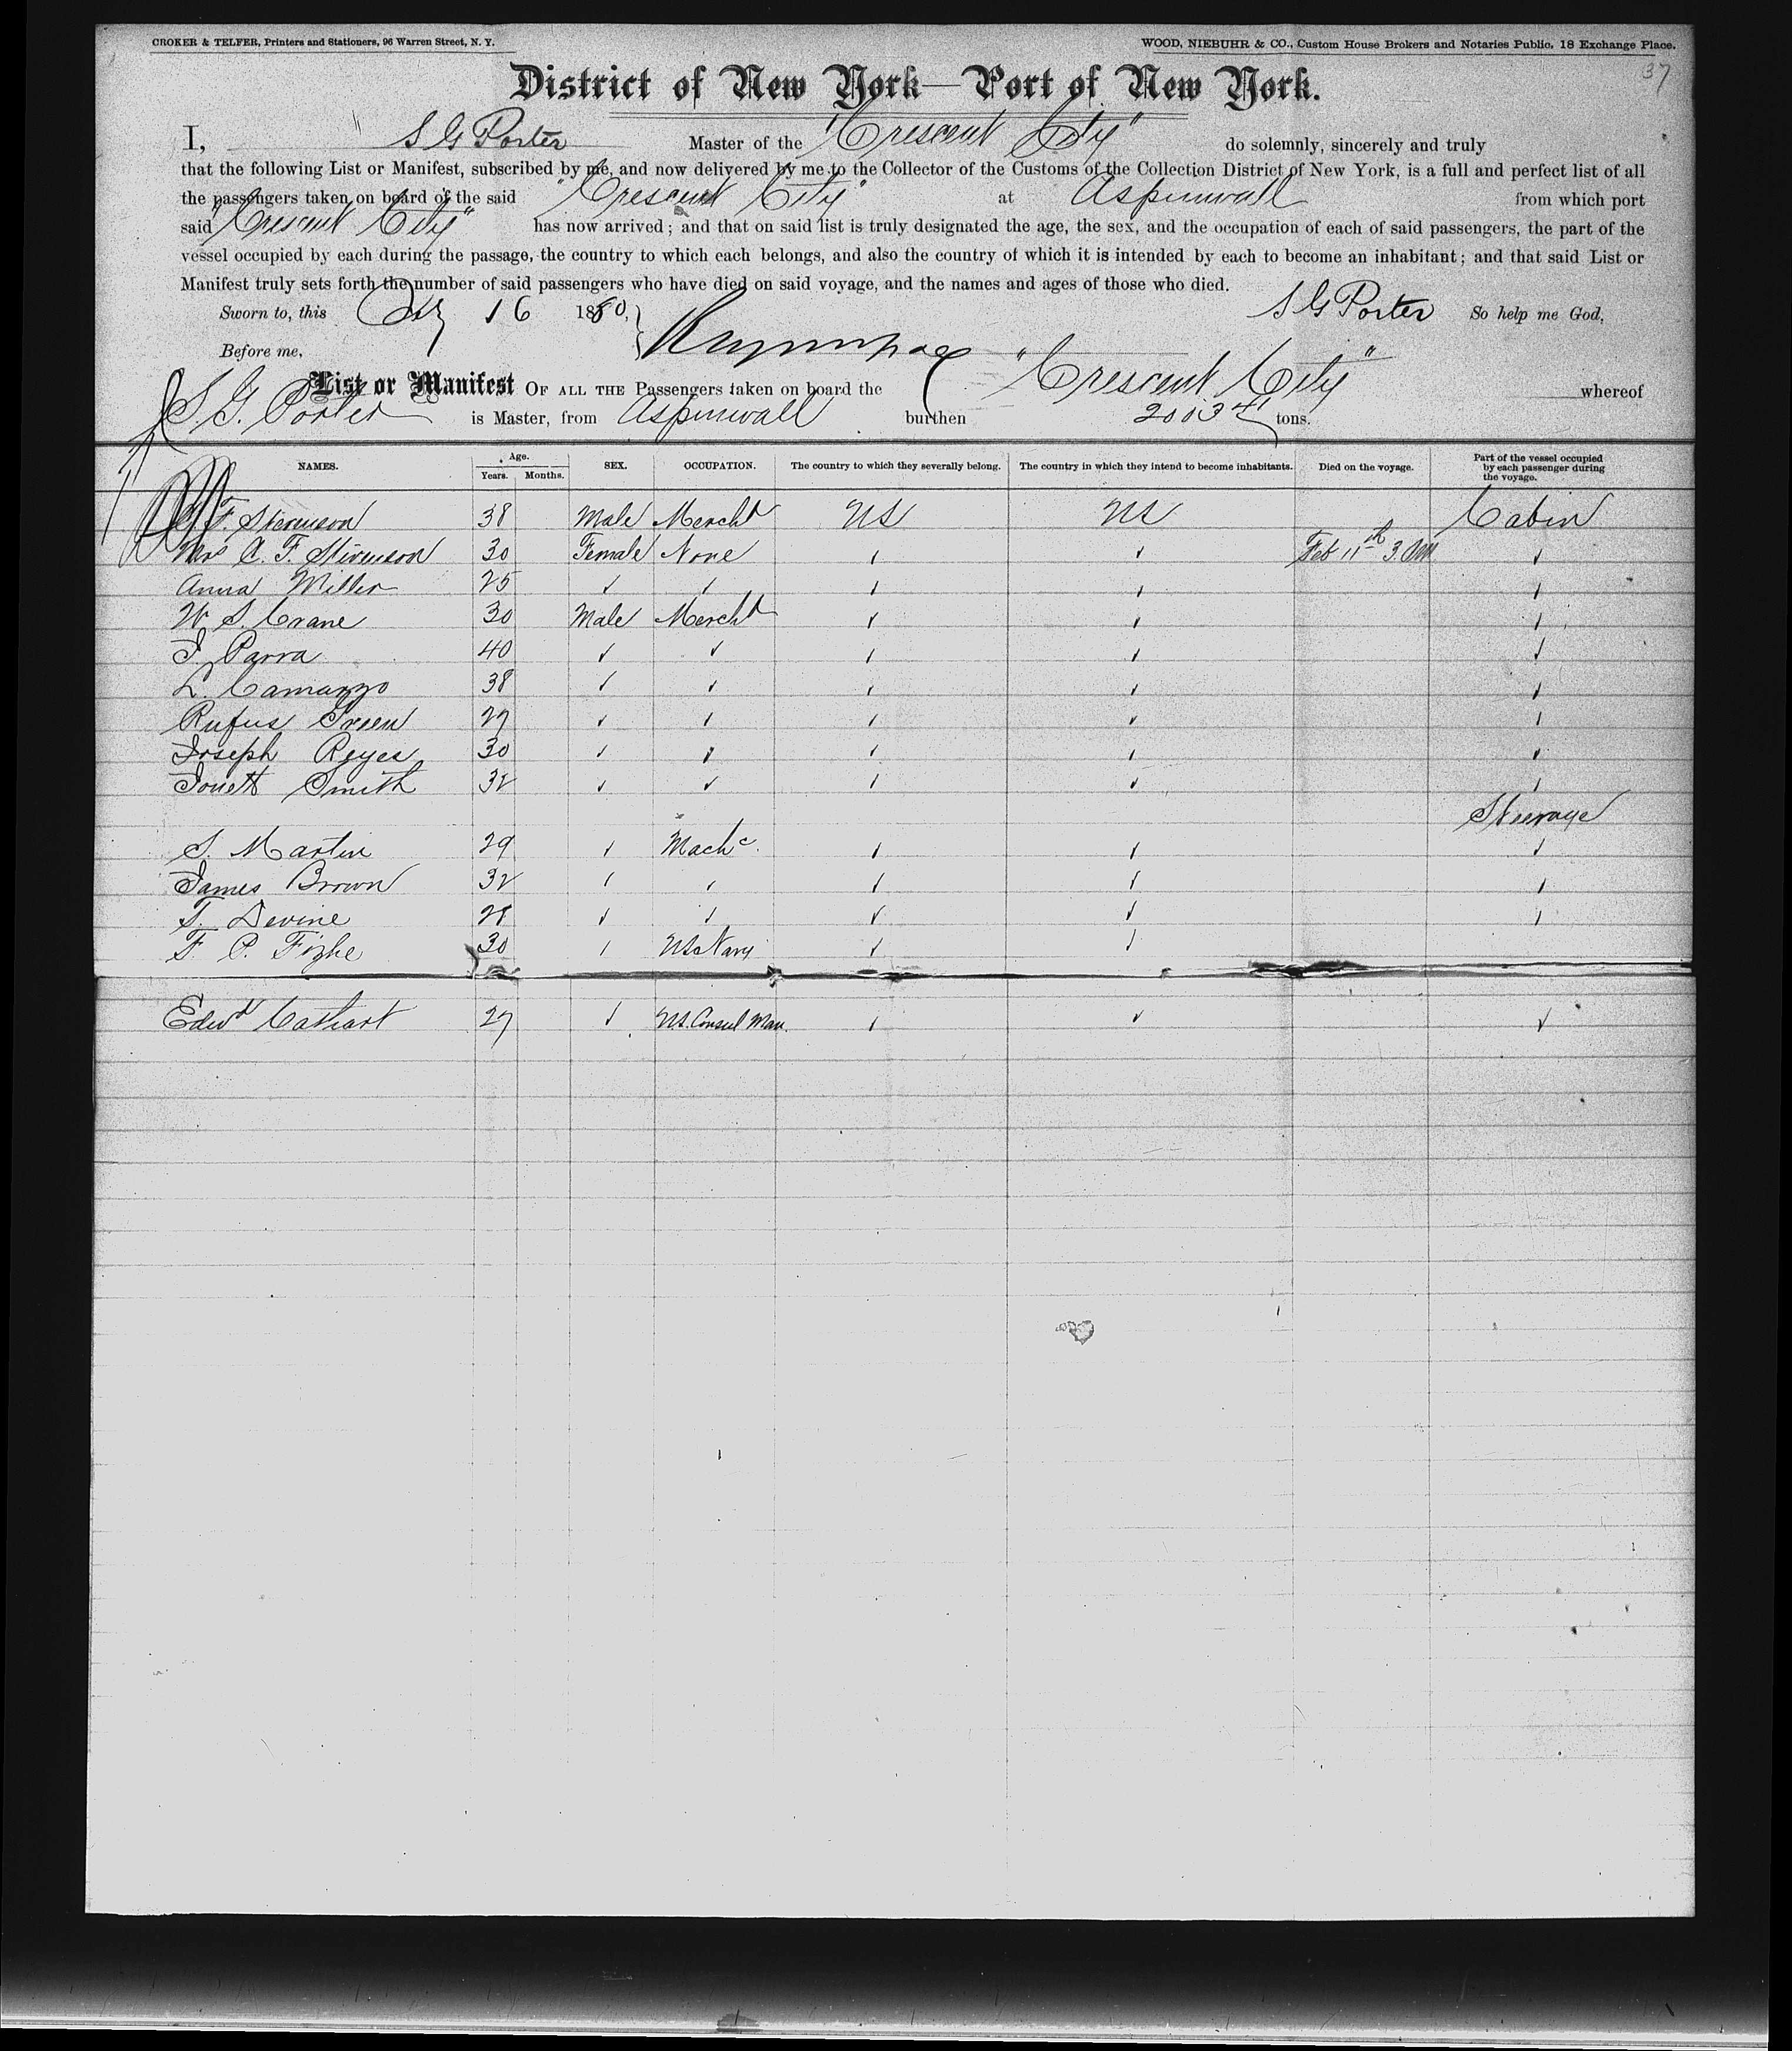 CROKER & TELFER, Printers and Stationers, 96 Warren Street, N. Y. WOOD, NIEBUHR & CO., Custom House Brokers and Notaries Public, 18 Exchange Place.
37
District of New York—Port of New York.
I, S G Porter Master of the "Crescent City" do solemnly, sincerely and truly
that the following List or Manifest, subscribed by me, and now delivered by me to the Collector of the Customs of the Collection District of New York, is a full and perfect list of all
the passengers taken on board of the said "Crescent City" at Aspinwall from which port
said "Crescent City" has now arrived; and that on said list is truly designated the age, the sex, and the occupation of each of said passengers, the part of the
vessel occupied by each during the passage, the country to which each belongs, and also the country of which it is intended by each to become an inhabitant; and that said List or
Manifest truly sets forth the number of said passengers who have died on said voyage, and the names and ages of those who died.
Sworn to, this 16 1880, S G Porter So help me God,
Before me,
List or Manifest OF ALL THE Passengers taken on board the "Crescent City" whereof
S. G. Porter is Master, from Aspinwall burthen 2003 tons.
NAMES. Age. Years. Months. SEX. OCCUPATION. The country to which they severally belong. The country in which they intend to become inhabitants. Died on the voyage. Part of the vessel occupied by each passenger during the voyage.
F. Stevenson 38 Male Mercht US US Cabin
Mrs C. F. Stevenson 30 Female None ✓ ✓ Feb 11th 3. AM ✓
Anna Miller 25 ✓ ✓ ✓ ✓ ✓
W. S. Crane 30 Male Mercht ✓ ✓ ✓
J. Parra 40 ✓ ✓ ✓ ✓ ✓
L. Camazzo 38 ✓ ✓ ✓ ✓ ✓
Rufus Green 27 ✓ ✓ ✓ ✓ ✓
Joseph Reyes 30 ✓ ✓ ✓ ✓ ✓
Jouett Smith 32 ✓ ✓ ✓ ✓ ✓
Steerage
S. Martin 29 ✓ Machc. ✓ ✓ ✓
James Brown 32 ✓ ✓ ✓ ✓ ✓
T. Devine 28 ✓ ✓ ✓ ✓ ✓
F. P. 30 ✓ US Navy ✓ ✓
Edwd Cathart 27 ✓ US. Consul Man. ✓ ✓ ✓